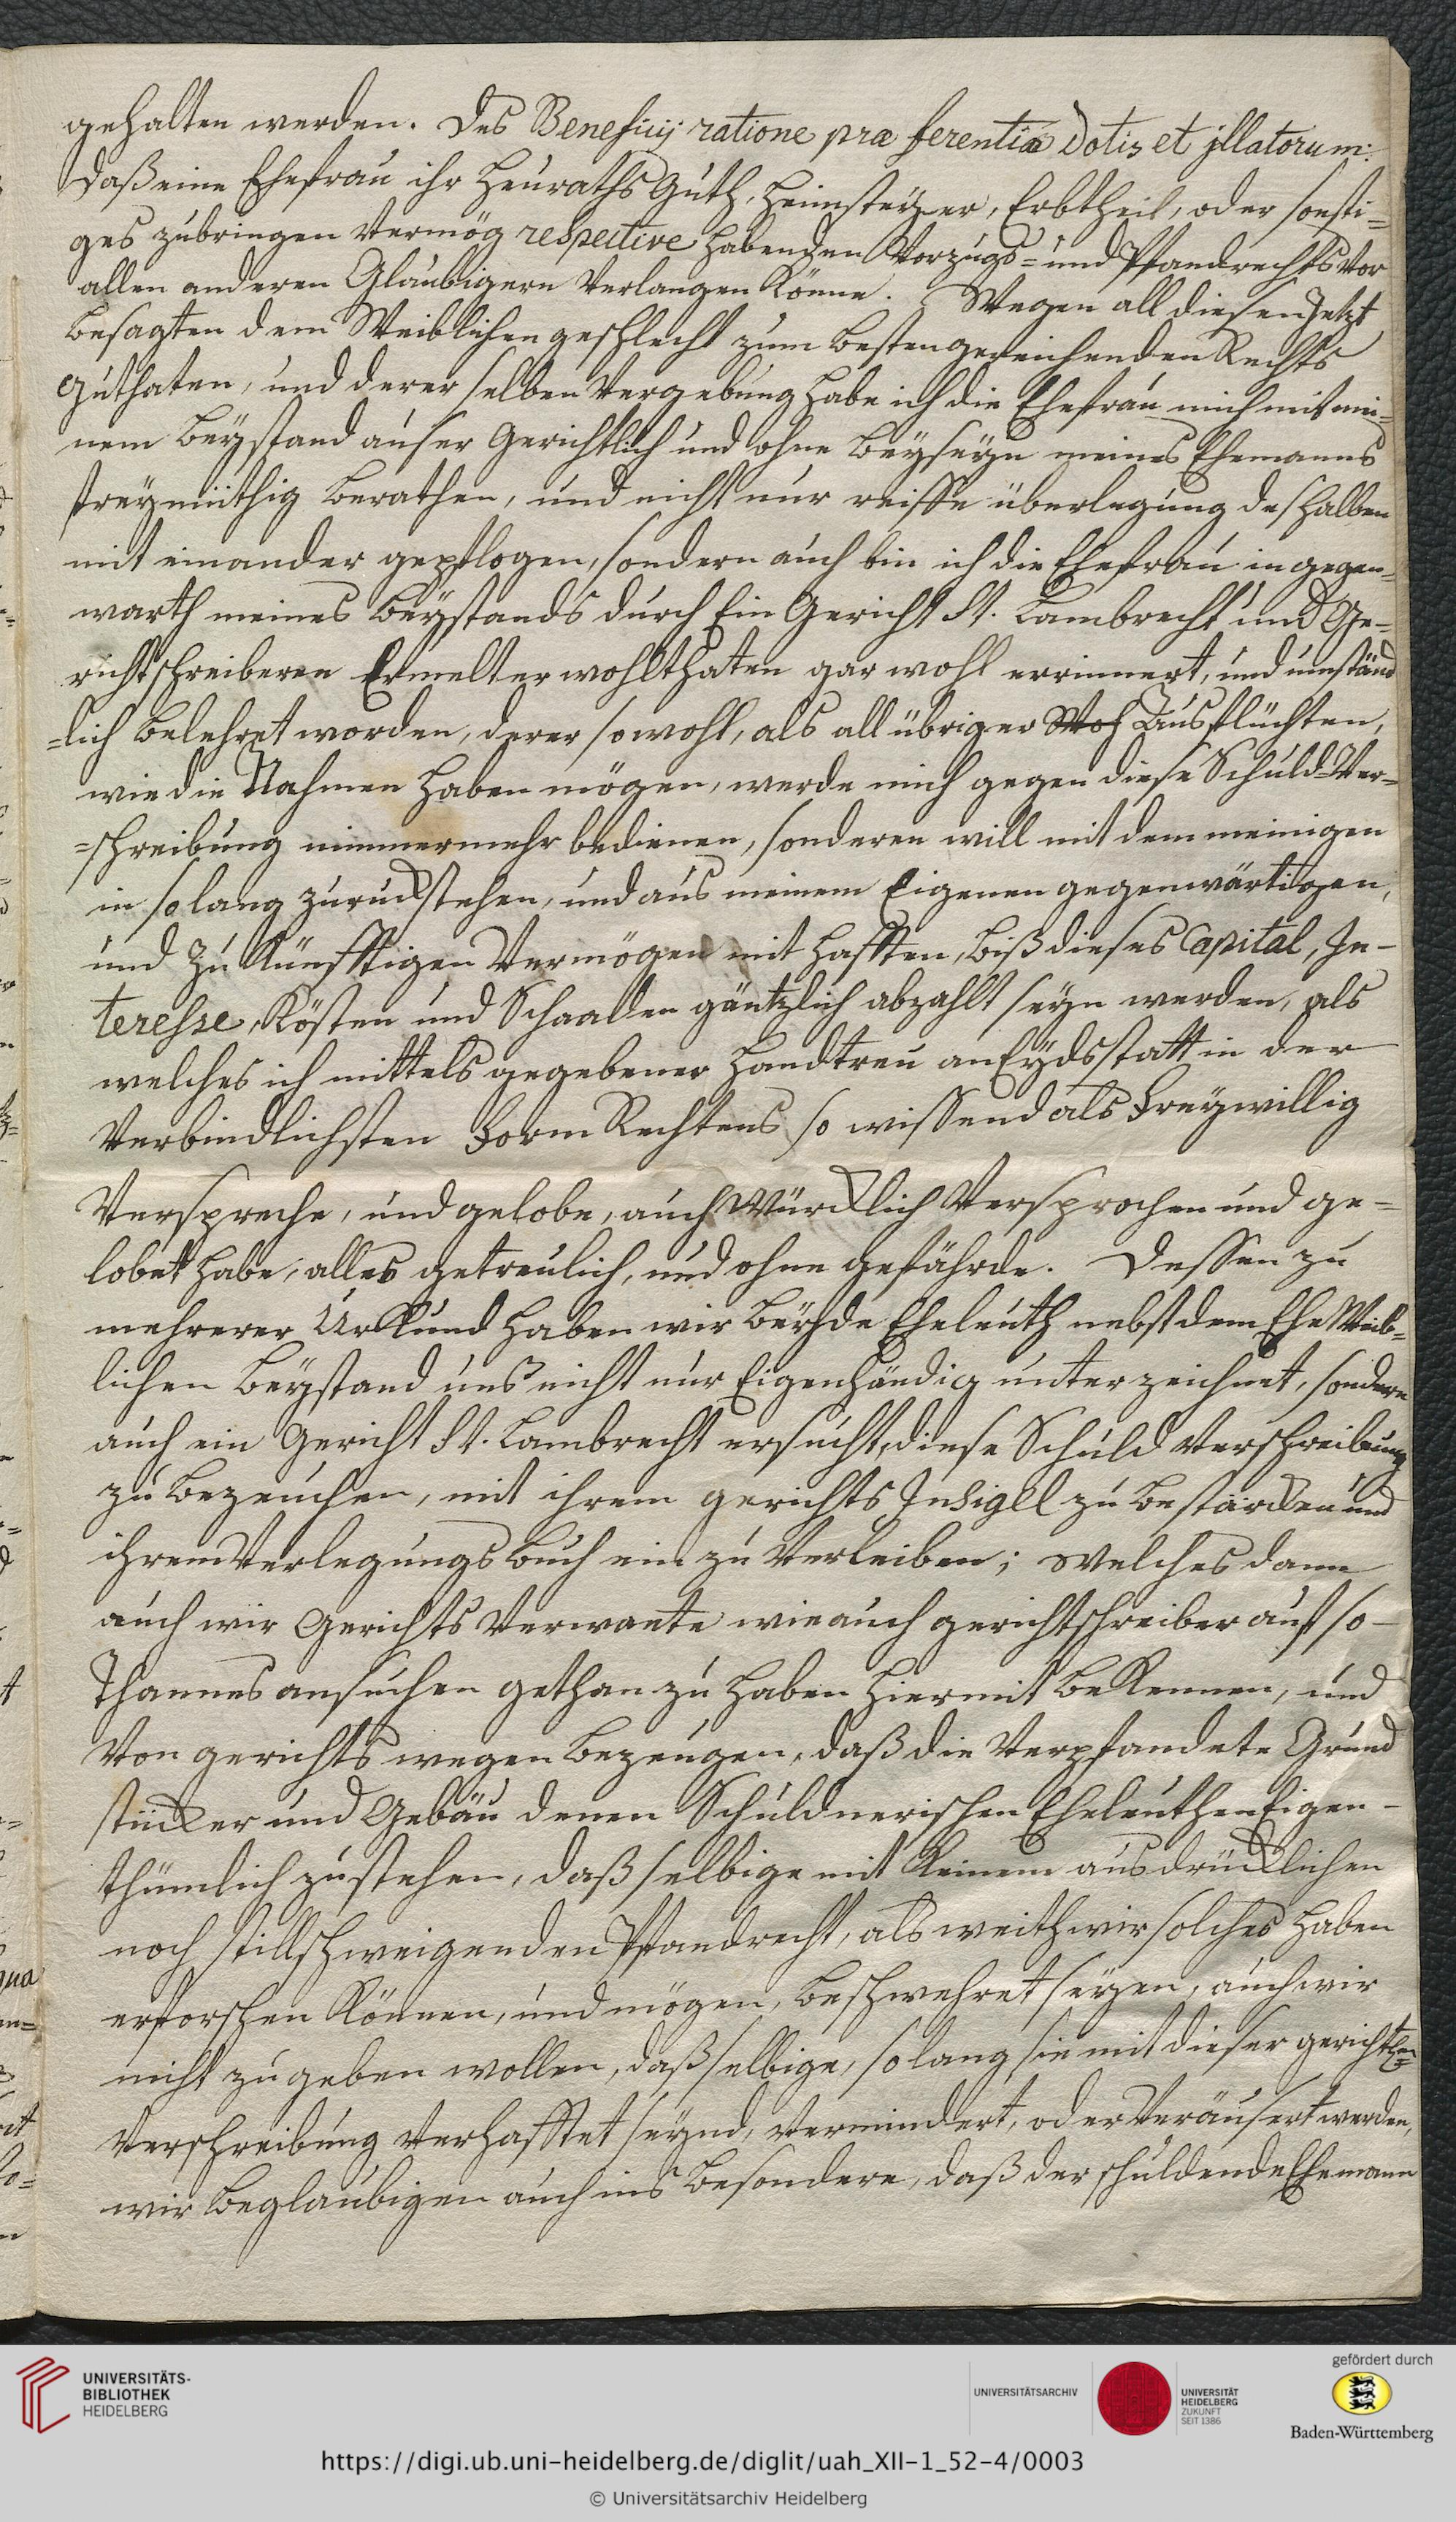 gehalten werden. Des Beneficij ratione præ ferentiæ Dotis et jllatorum:
Daß eine Ehefrau ihr Heuraths Guth, Heimsteyer, Erbtheil, oder sonsti=
ges zubringen Vermög respective habenden Vorzugs= und Pfandrechts vor
allen anderen Glaubigern Verlangen Könne. Wegen all diesen Jetzt
besagten dem Weiblichen geschlecht zum besten gereichenden Rechts
Guthaten, und derer selben Vergebung habe ich die Ehefrau mich mit mei=
nem Beystand auser Gerichtlich und ohne Beyseyn meines Ehemanns
freymüthig berathen, und nicht nur reiffe überlegung deshalben
mit einander gepflogen, sondern auch bin ich die Ehefrau in gegen=
warth meines Beystands durch Ein Gericht St. Lambrecht und Ge=
richtschreiberen Ermelter wohlthaten gar wohl errinnert, und umständ
=lich belehret worden, derer sowohl, als all übriger Ausflüchten,
wie die Nahmen haben mögen, werde mich gegen diese Schuld=Ver=
=schreibung nimmermehr bedienen, sonderen will mit dem meinigen
in so lang zuruckstehen, und aus meinem Eigenen gegenwärtigen,
und zu Künfftigen Vermögen mit hafften, biß dieses Capital, In-
teresse, Kösten und Schaaden gäntzlich abzahlt seyn werden, als
welches ich mittels gegebener Handtreu an Eydsstatt in der
Verbindlichsten Form Rechtens so wissend als Freywillig
Verspreche, und gelobe, auch Würcklich Versprochen und ge=
lobet habe, alles getreulich, und ohne gefährde. Dessen zu
mehrerer Urkund haben wir Beyde Eheleuth nebst dem Ehe Weib=
lichen Beystand uns nicht nur Eigenhändig unterzeichnet, sondern
auch ein Gericht St. Lambrecht ersucht, diese Schuld Verschreibung
zu bezeuchen, mit ihrem gerichts Insigell zu bestärcken und
ihrem Verlegungs Buch ein zu Verleiben; welches dann
auch wir Gerichts Verwante wie auch gerichtschreiber auf so-
Thannes ansuchen gethan zu haben hiermit bekennen, und
Von gerichts wegen bezeugen, daß die Verpfandete Grund
stücker und Gebäu denen Schuldnerischen Eheleuthen Eigen-
thümlich zustehen, daß selbige mit Keinem ausdrücklichen
noch stillschweigenden Pfandrecht, als weith wir solches haben
erforschen Können, und mögen, beschwehret seyen, auch wir
nicht zu geben wollen, daß selbige, so lang sie mit dieser gerichtln=
Verschreibung Verhafftet seynd, Vermindert, oder Veräusert werden,
wir beglaubigen auch ins besondere, daß der schuldende Ehemann
UNIVERSITÄTS-
BIBLIOTHEK
HEIDELBERG
UNIVERSITÄTSARCHIV
UNIVERSITÄT
HEIDELBERG
ZUKUNFT
SEIT 1386
gefördert durch
Baden-Württemberg
https://digi.ub.uni-heidelberg.de/diglit/uah_XII-1_52-4/0003
© Universitätsarchiv Heidelberg